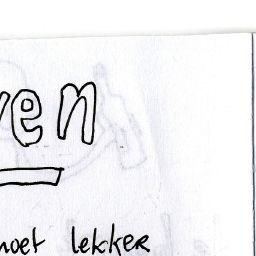 ven
moet lekker